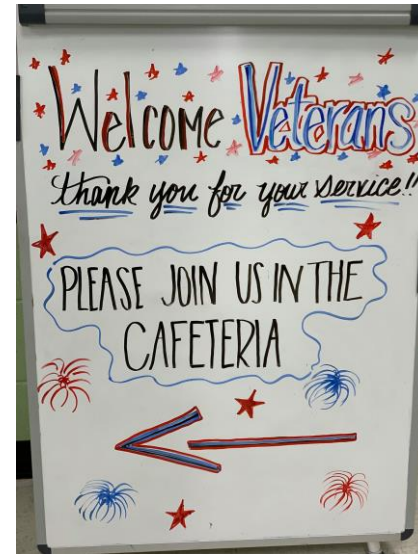 Welcome Veterans
thank you for your service!!
PLEASE JOIN US IN THE
CAFETERIA